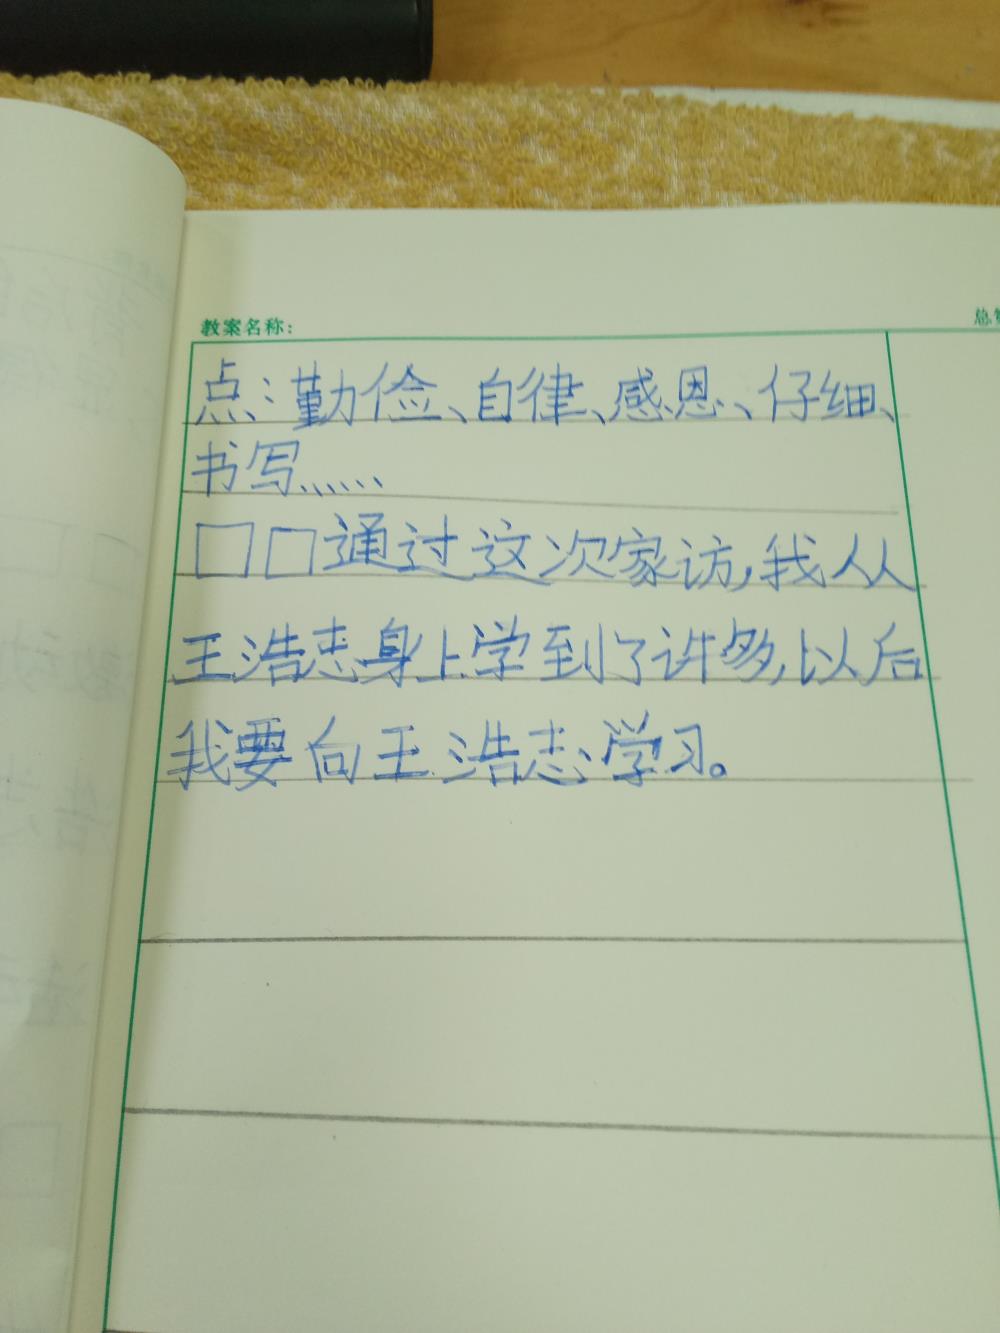 教案名称:
点:勤俭、自律、感恩、仔细、
书写……
□□通过这次家访,我从
王浩志身上学到了许多,以后
我要向王浩志学习。